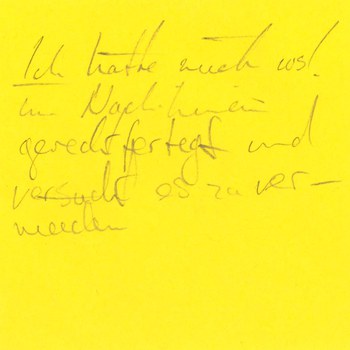 Ich hatte mich wsl.
im Nachhinein
gerechtfertegt und
versucht es zu ver-
meiden